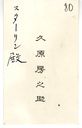 80
スターリン殿
久原房之助